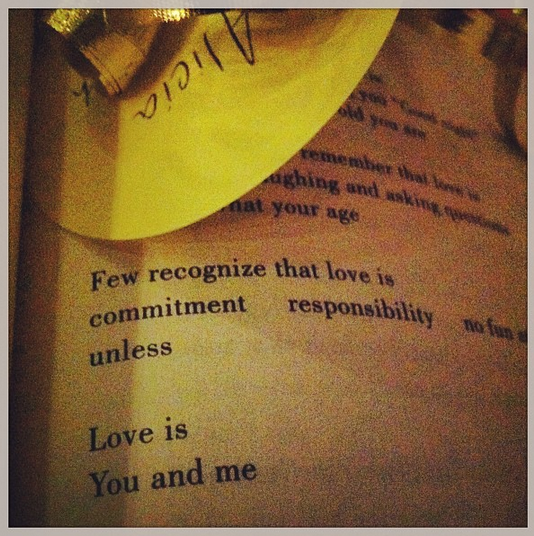 Alicia
you "Good night"
old you are
remember that love is
ughing and asking questions
hat your age
Few recognize that love is
commitment responsibility no fun
unless
Love is
You and me